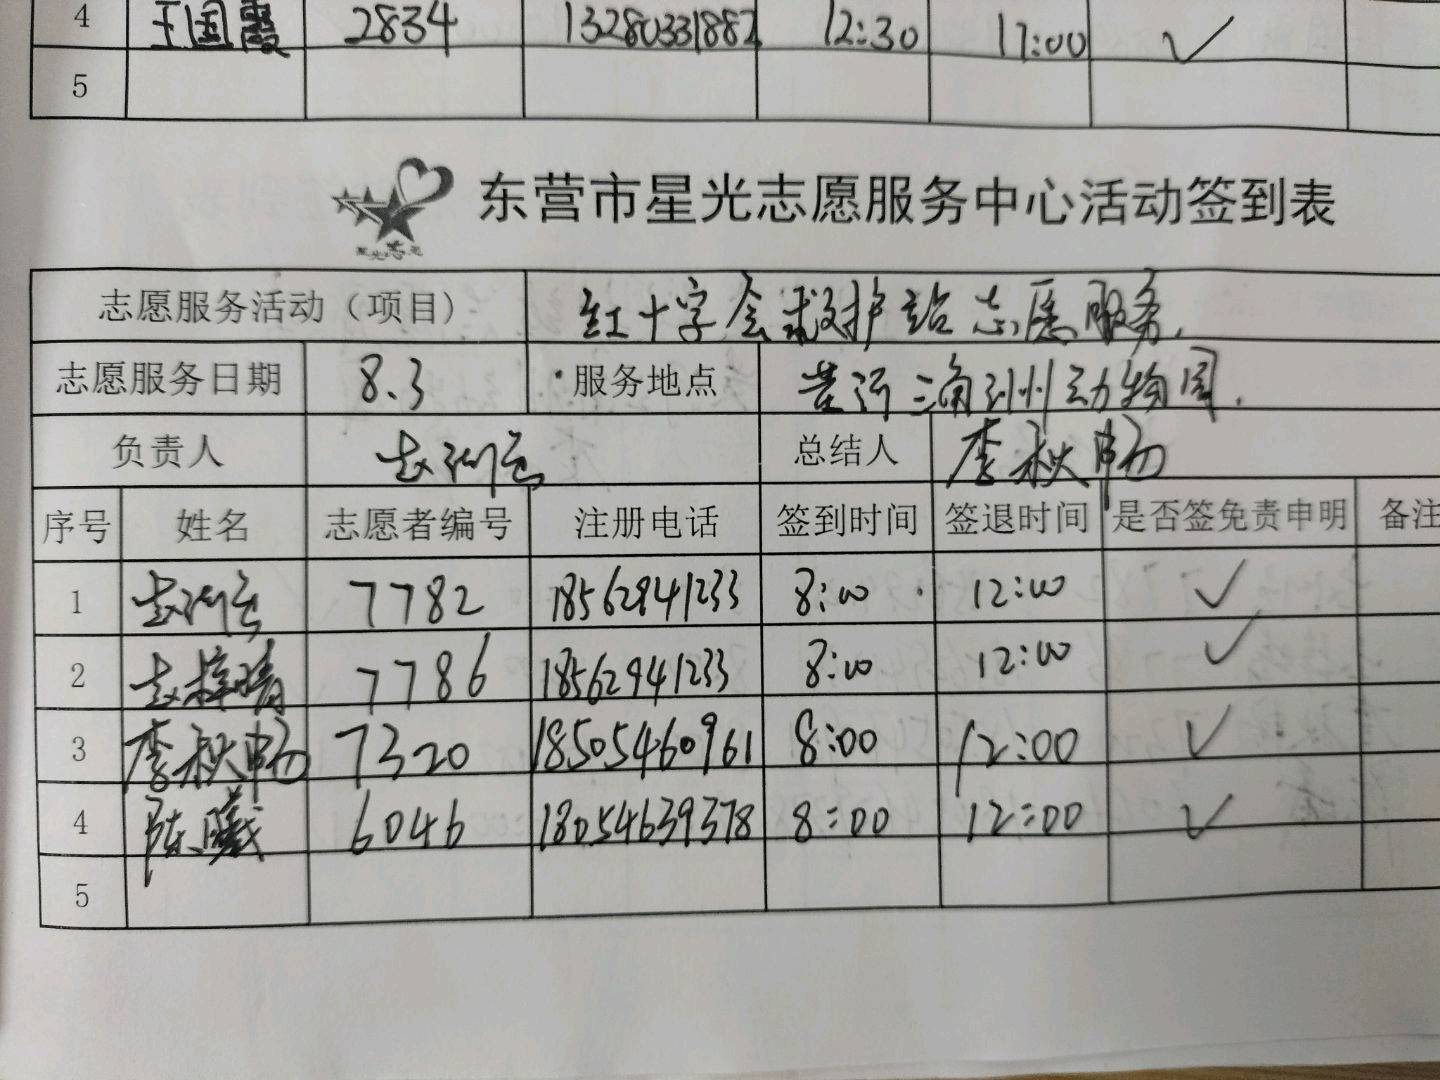 4 王国霞 2834 13280331882 12:30 17:00 ✓
5
东营市星光志愿服务中心活动签到表
志愿服务活动（项目） 红十字会救护站志愿服务.
志愿服务日期 8.3 服务地点 黄河三角洲动物园.
负责人 赵 总结人 李秋畅
序号 姓名 志愿者编号 注册电话 签到时间 签退时间 是否签免责申明 备注
1 赵 7782 18562941233 8:00 12:00 ✓
2 赵梓晴 7786 18562941233 8:00 12:00 ✓
3 李秋畅 7320 18505460961 8:00 12:00 ✓
4 陈曦 6046 18054639378 8:00 12:00 ✓
5